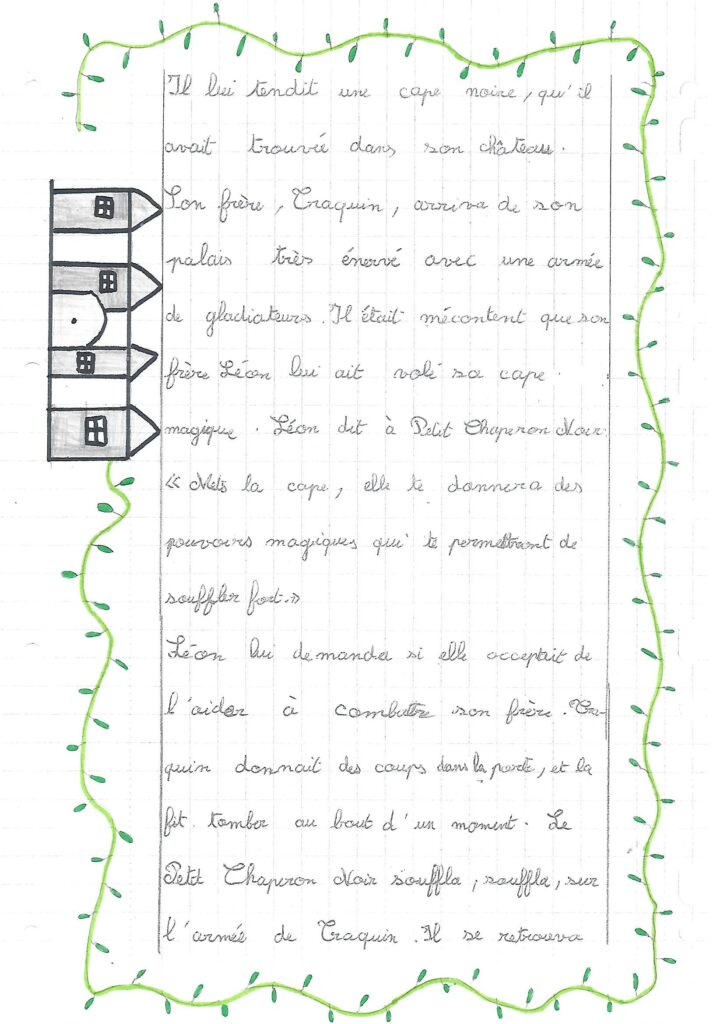 Il lui tendit une cape noire, qu'il
avait trouvée dans son château.
Son frère, Traquin, arriva de son
palais très énervé avec une armée
de gladiateurs. Il était mécontent que son
frère Léon lui ait volé sa cape
magique. Léon dit à Petit Chaperon Noir
« Mets la cape, elle te donnera des
pouvoirs magiques qui te permettront de
souffler fort. »
Léon lui demanda si elle acceptait de
l'aider à combattre son frère. Tra-
quin donnait des coups dans la porte, et la
fit tomber au bout d'un moment. Le
Petit Chaperon Noir souffla, souffla, sur
l'armée de Traquin. Il se retrouva